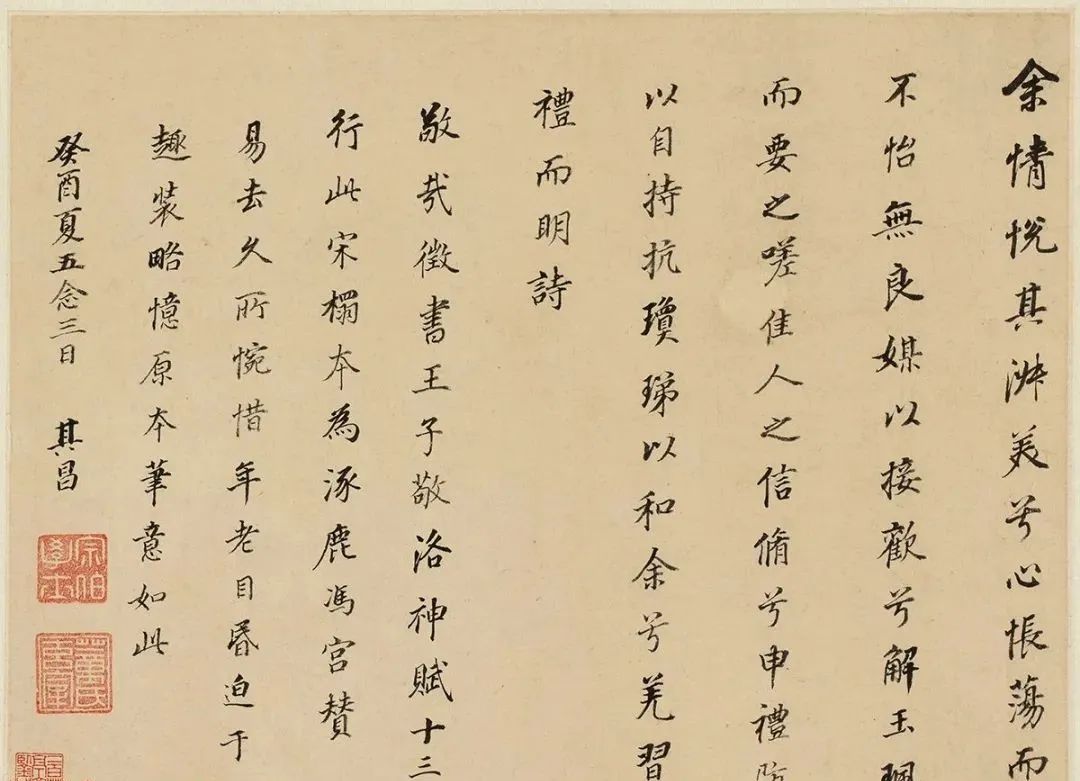 余情悅其淑美兮心悵蕩而
不怡無良媒以接歡兮解玉珮
而要之嗟佳人之信脩兮申禮防
以自持抗瓊珶以和余兮羌習
禮而明詩
敬哉徵書王子敬洛神賦十三
行此宋榻本為涿鹿馮宮贊
易去久所惋惜年老目昏迫于
趣裝略憶原本筆意如此
癸酉夏五念三日 其昌
宗伯學士